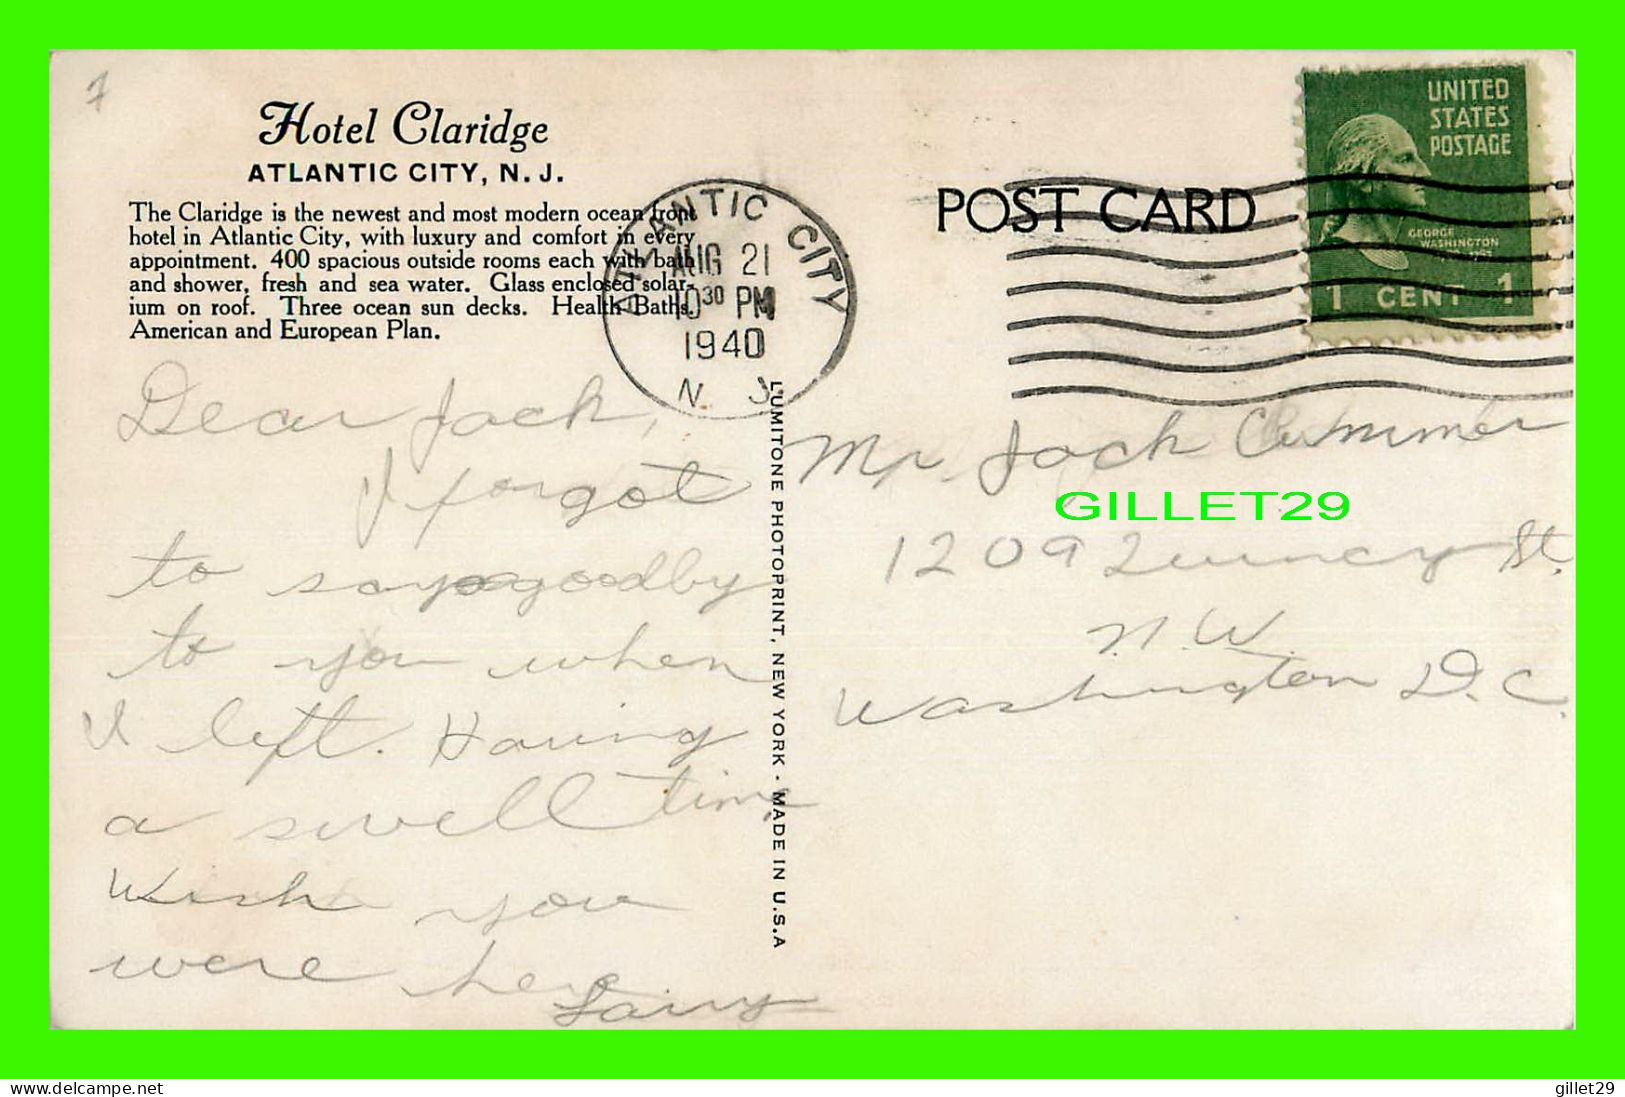 7
Hotel Claridge
ATLANTIC CITY, N. J.
The Claridge is the newest and most modern ocean front
hotel in Atlantic City, with luxury and comfort in every
appointment. 400 spacious outside rooms each with bath
and shower, fresh and sea water. Glass enclosed solar-
ium on roof. Three ocean sun decks. Health Baths.
American and European Plan.
ATLANTIC CITY
AUG 21
10 30 PM
1940
N. J.
POST CARD
UNITED
STATES
POSTAGE
GEORGE
WASHINGTON
1 CENT 1
Dear Jack,
I forgot
to say goodby
to you when
I left. Having
a swell time
Wish you
were here
Larry
LUMITONE PHOTOPRINT, NEW YORK - MADE IN U.S.A
Mr. Jack
GILLET29
1209 Quincy St.
N. W.
Washington D. C.
delcampe.net
gillet29